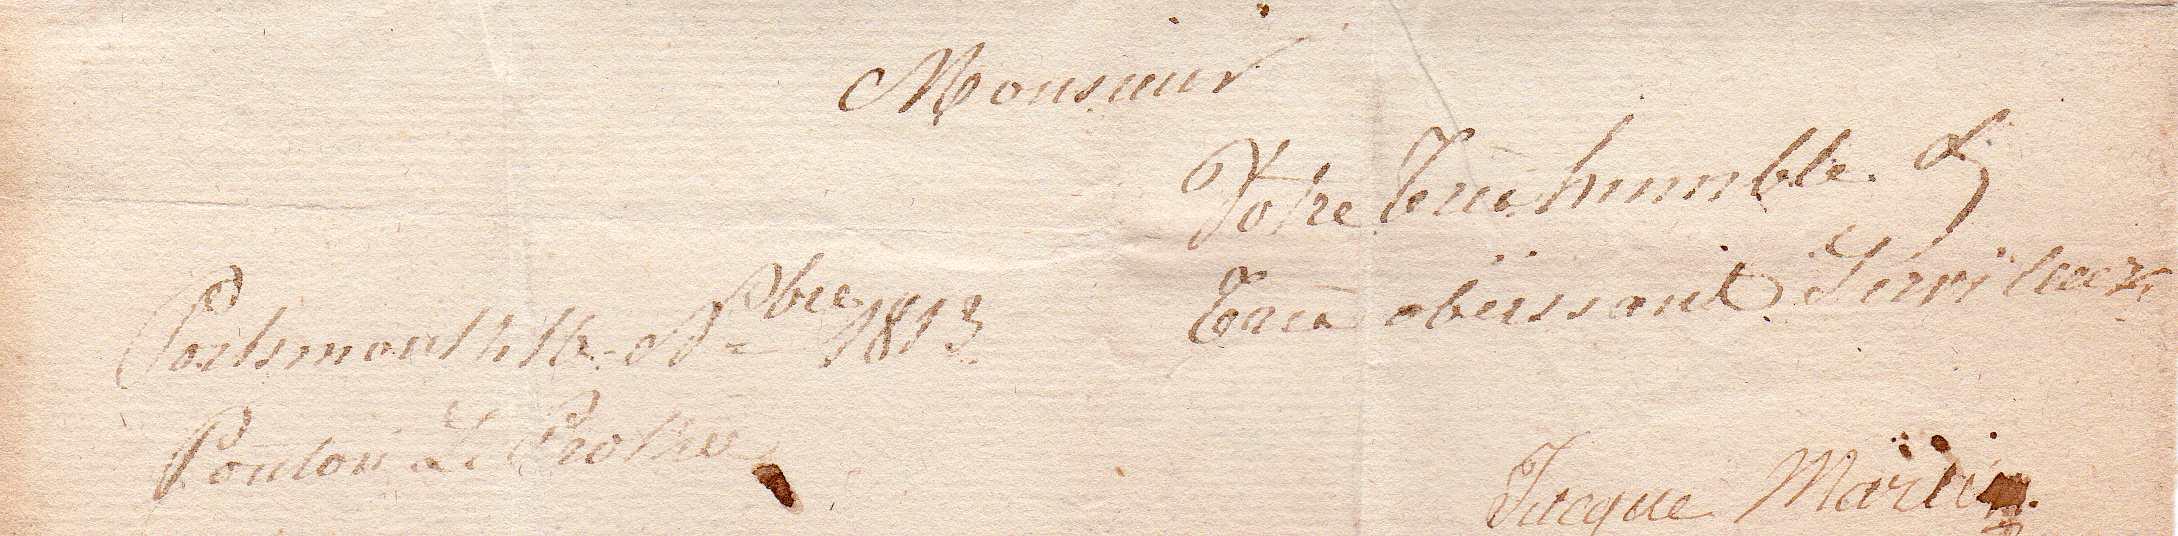 Monsieur
Votre tres humble. &
tres obeissant Serviteur
Portsmouth 16 Nbre 1813
Ponton Le Prothee
Jacque Martin